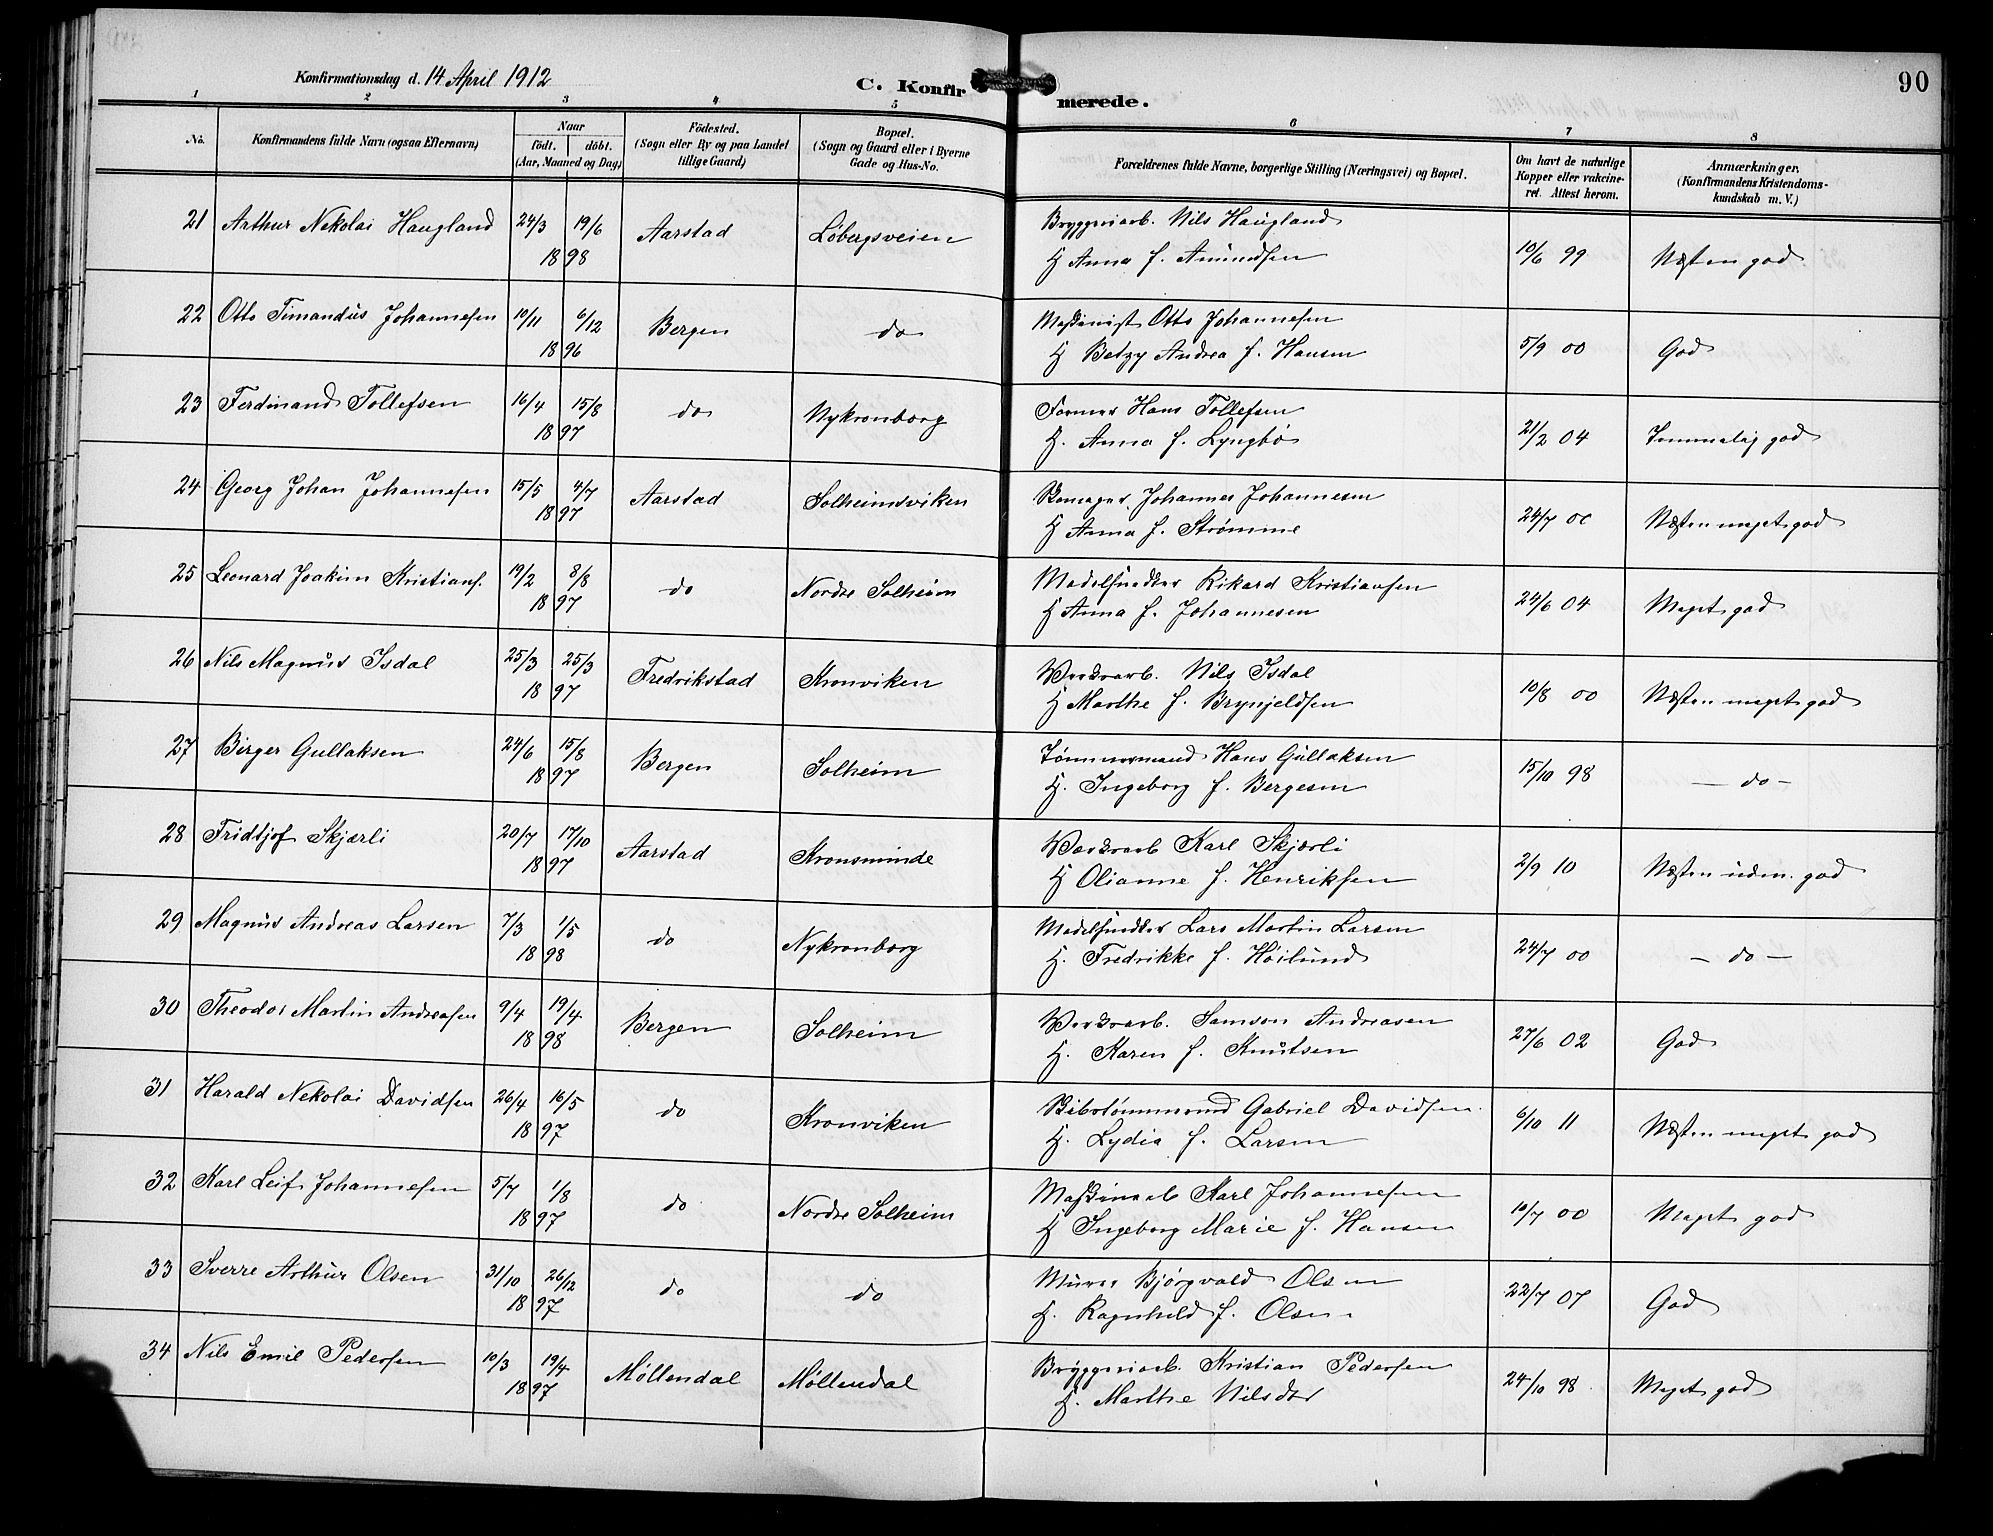 90
Konfirmationsdag d. 14 April 1912
C. Konfirmerede.
1 2 3 4 5 6 7 8
No. Konfirmandens fulde Navn (ogsaa Efternavn) Naar födt. döbt. (Aar, Maaned og Dag) Födested. (Sogn eller By og paa Landet tillige Gaard) Bopæl. (Sogn og Gaard eller i Byerne Gade og Hus-No. Forældrenes fulde Navne, borgerlige Stilling (Næringsvei) og Bopæl. Om havt de naturlige Kopper eller vakcineret. Attest herom. Anmærkninger. (Konfirmandens Kristendomskundskab m. V.)
21 Arthur Nekolai Haugland 24/3 19/6 1898 Aarstad Löbergsveien Bryggeriarb. Nils Haugland
H Anna f. Amundsen 10/6 99 Næsten god
22 Otto Timandus Johannesen 10/11 6/12 1896 Bergen do Maskinist Otto Johannesen
H Betzy Andrea f. Hansen 5/9 00 God
23 Ferdinand Tollefsen 16/4 15/8 1897 do Nykronborg Former Hans Tollefsen
H. Anna f. Lyngbö 21/2 04 Temmelig god
24 Georg Johan Johannesen 15/5 4/7 1897 Aarstad Solheimsviken Skomager Johannes Johannesen
H Anna f. Strømme 24/7 00 Næsten meget god
25 Leonard Joakim Kristians. 19/2 8/8 1897 do Nordre Solheim Modelsnedker Rikard Kristiansen
H Anna f. Johannesen 24/6 04 Meget god
26 Nils Magnus Isdal 25/3 25/3 1897 Fredrikstad Kronviken Værksarb. Nils Isdal
H Marthe f. Brynjeldsen 10/8 00 Næsten meget god
27 Birger Gullaksen 24/6 15/8 1897 Bergen Solheim Tømmermand Hans Gullaksen
H. Ingeborg f. Bergesen 15/10 98 — do —
28 Fridtjof Skjærli 20/7 17/10 1897 Aarstad Kronsminde Værksarb Karl Skjærli
H Olianne f. Henriksen 2/9 10 Næsten uden. god
29 Magnus Andreas Larsen 7/3 1/5 1898 do Nykronborg Modelsnedker Lars Martin Larsen
H. Fredrikke f. Höilund 24/7 00 — do —
30 Theodor Martin Andreasen 9/4 19/4 1898 Bergen Solheim Værksarb. Samson Andreasen
H. Karen f. Knutsen 27/6 02 God
31 Harald Nekolai Davidsen 26/4 16/5 1897 do Kronviken Skibstømmermand Gabriel Davidsen
H. Lydia f. Larsen 6/10 11 Næsten meget god
32 Karl Leif Johannesen 5/7 1/8 1897 do Nordre Solheim Maskinarb Karl Johannesen
H Ingeborg Marie f. Hansen 10/7 00 Meget god
33 Sverre Arthur Olsen 31/10 26/12 1897 do do Murer Bjørgvald Olsen
H. Ragnhild f. Olsen 22/7 07 God
34 Nils Emil Pedersen 10/3 19/4 1897 Møllendal Møllendal Bryggeriarb. Kristian Pedersen
H. Marthe Nilsdtr 24/10 98 Meget god